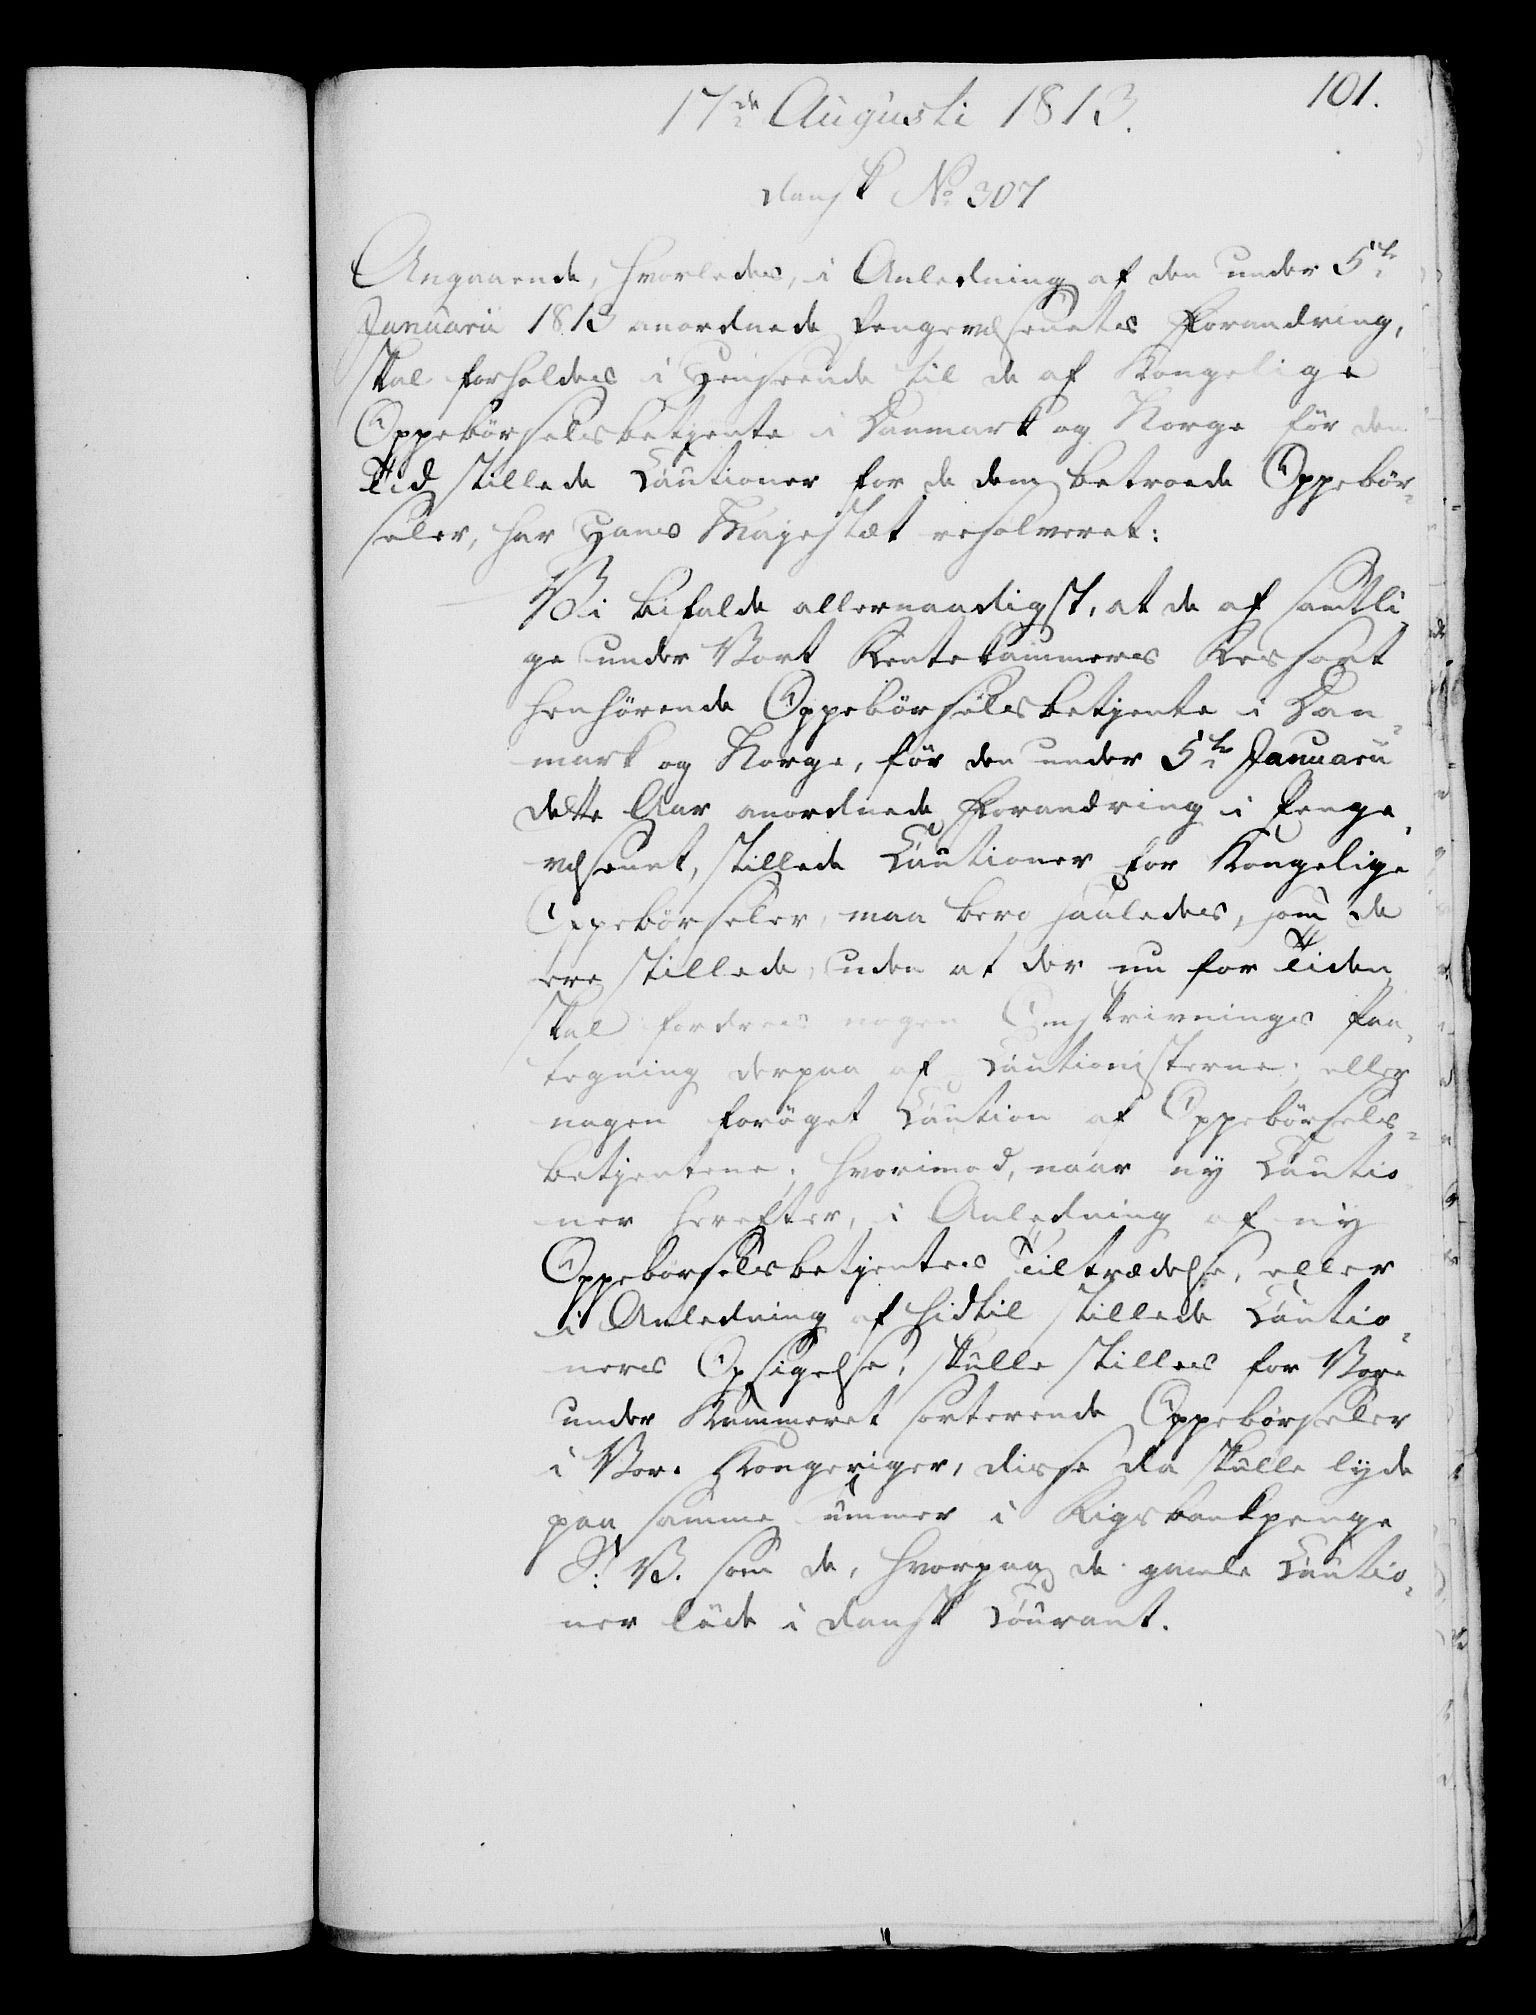 101.
17de Augusti 1813.
dansk No 307
Angaaende, hvorledes, i Anledning af den under 5te
Januarii 1813 anordnede Pengevæsenets Forandring,
skal forholdes i Henseende til de af Kongelige
Oppebörselsbetjente i Danmark og Norge för den
Tid stillede Cautioner for de dem betroede Oppebör-
seler, har Hans Majestæt resolveret:
Vi bifalde allernaadigst, at de af samtli-
ge under Vort Rentekammers Ressort
henhörende Oppebörselsbetjente i Dan-
mark og Norge, för den under 5te Januarii
dette Aar anordnede Forandring i Penge-
væsenet, stillede Cautioner for Kongelige
Oppebörseler, maa bero saaledes, som de
ere stillede, uden at der nu for Tiden
skal fordres nogen Omskrivnings Paa-
tegning derpaa af Cautionisterne; eller
nogen foröget Caution af Oppebörsels-
betjentene; hvorimod, naar ny Cautio-
ner herefter, i Anledning af ny
Oppebörselsbetjentes Tiltrædelse, eller
i Anledning af hidtil stillede Cautio-
ners Opsigelse, skulle stilles for Vore
under Kammeret sorterende Oppebörseler
i Vore Kongeriger, disse da skulle lyde
paa samme Summer i Rigsbankpenge
S. V. som de, hvorpaa de gamle Cautio-
ner löde i dansk Courant.